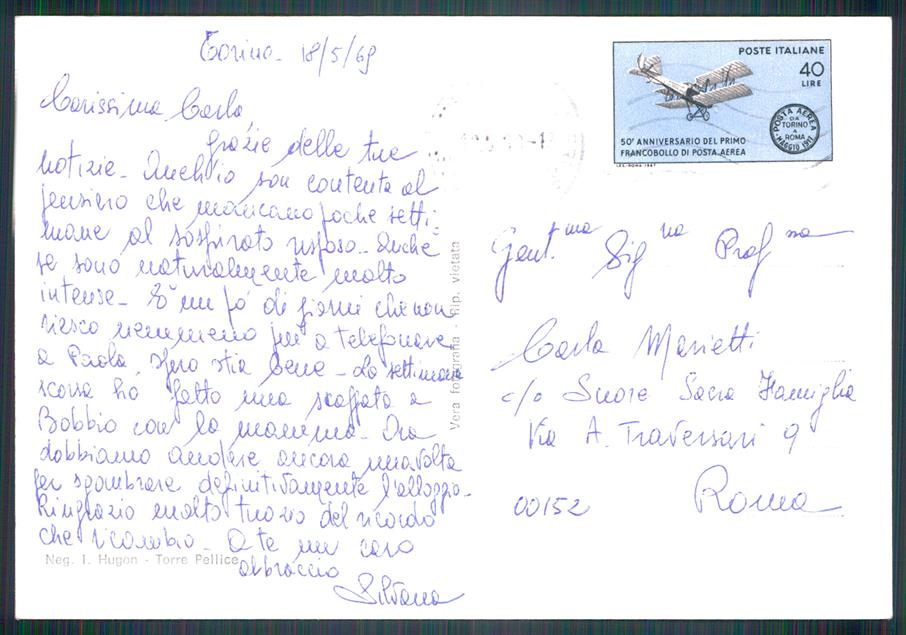 Torino - 18/5/69
Carissima Carla,
grazie delle tue
notizie - Anch'io son contenta al
pensiero che mancano poche setti-
mane al sospirato riposo - Anche
se sono naturalmente molto
intense - È un po' di giorni che non
riesco nemmeno più a telefonare
a Paola, spero stia bene - La settimana
scorsa ho fatto una scappata a
Bobbio con la mamma - Ora
dobbiamo andare ancora una volta
per sgombrare definitivamente l'alloggio -
Ringrazio molto tuo del ricordo
che ricambio - A te un caro
abbraccio
Silvana
Neg. I. Hugon - Torre Pellice
Vera fotografia - Rip. vietata
POSTE ITALIANE
40
LIRE
POSTA AEREA
DA
TORINO
A
ROMA
MAGGIO 1917
50° ANNIVERSARIO DEL PRIMO
FRANCOBOLLO DI POSTA AEREA
I.P.S.-ROMA 1967
Gent.ma Sig.na Prof.ssa
Carla Marietti
c/o Suore Sacra Famiglia
Via A. Traversari 9
00152 Roma